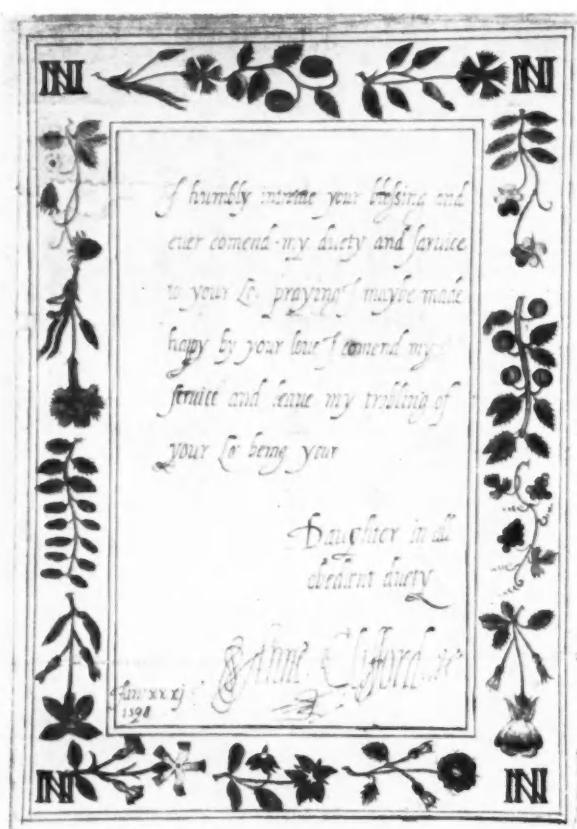 I humbly intreate your blessing and
ever comend my duety and saruice
to your Lo: praying I maybe made
happy by your loue I comend my
seruice and leaue my trobling of
your Lo: being your
Daughter in all
obedient duety
Anne Clifford
Janu xxxj
1598